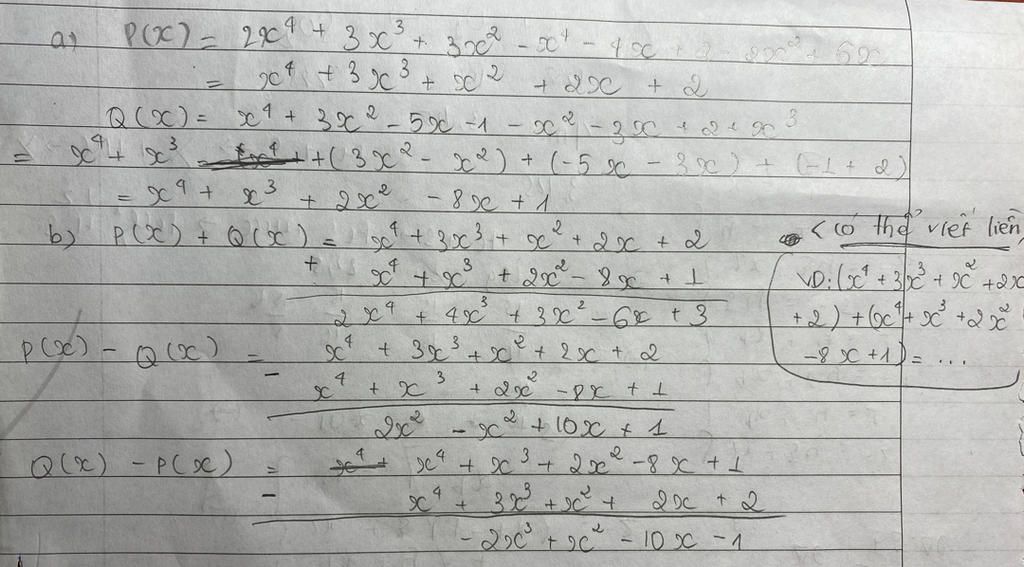 a) P(x) = 2x⁴ + 3x³ + 3x² - x⁴ - 4x + 2 - 2x² + 6x
= x⁴ + 3x³ + x² + 2x + 2
Q(x) = x⁴ + 3x² - 5x - 1 - x² - 3x + 2 + x³
= x⁴ + x³ + (3x² - x²) + (-5x - 3x) + (-1 + 2)
= x⁴ + x³ + 2x² - 8x + 1
b) P(x) + Q(x) = x⁴ + 3x³ + x² + 2x + 2
+ x⁴ + x³ + 2x² - 8x + 1
2x⁴ + 4x³ + 3x² - 6x + 3
< có thể viết liền,
VD: (x⁴ + 3x³ + x² + 2x
+ 2) + (x⁴ + x³ + 2x²
- 8x + 1) = ...
P(x) - Q(x) = x⁴ + 3x³ + x² + 2x + 2
- x⁴ + x³ + 2x² - 8x + 1
2x² - x² + 10x + 1
Q(x) - P(x) = x⁴ + x³ + 2x² - 8x + 1
- x⁴ + 3x³ + x² + 2x + 2
- 2x³ + x² - 10x - 1